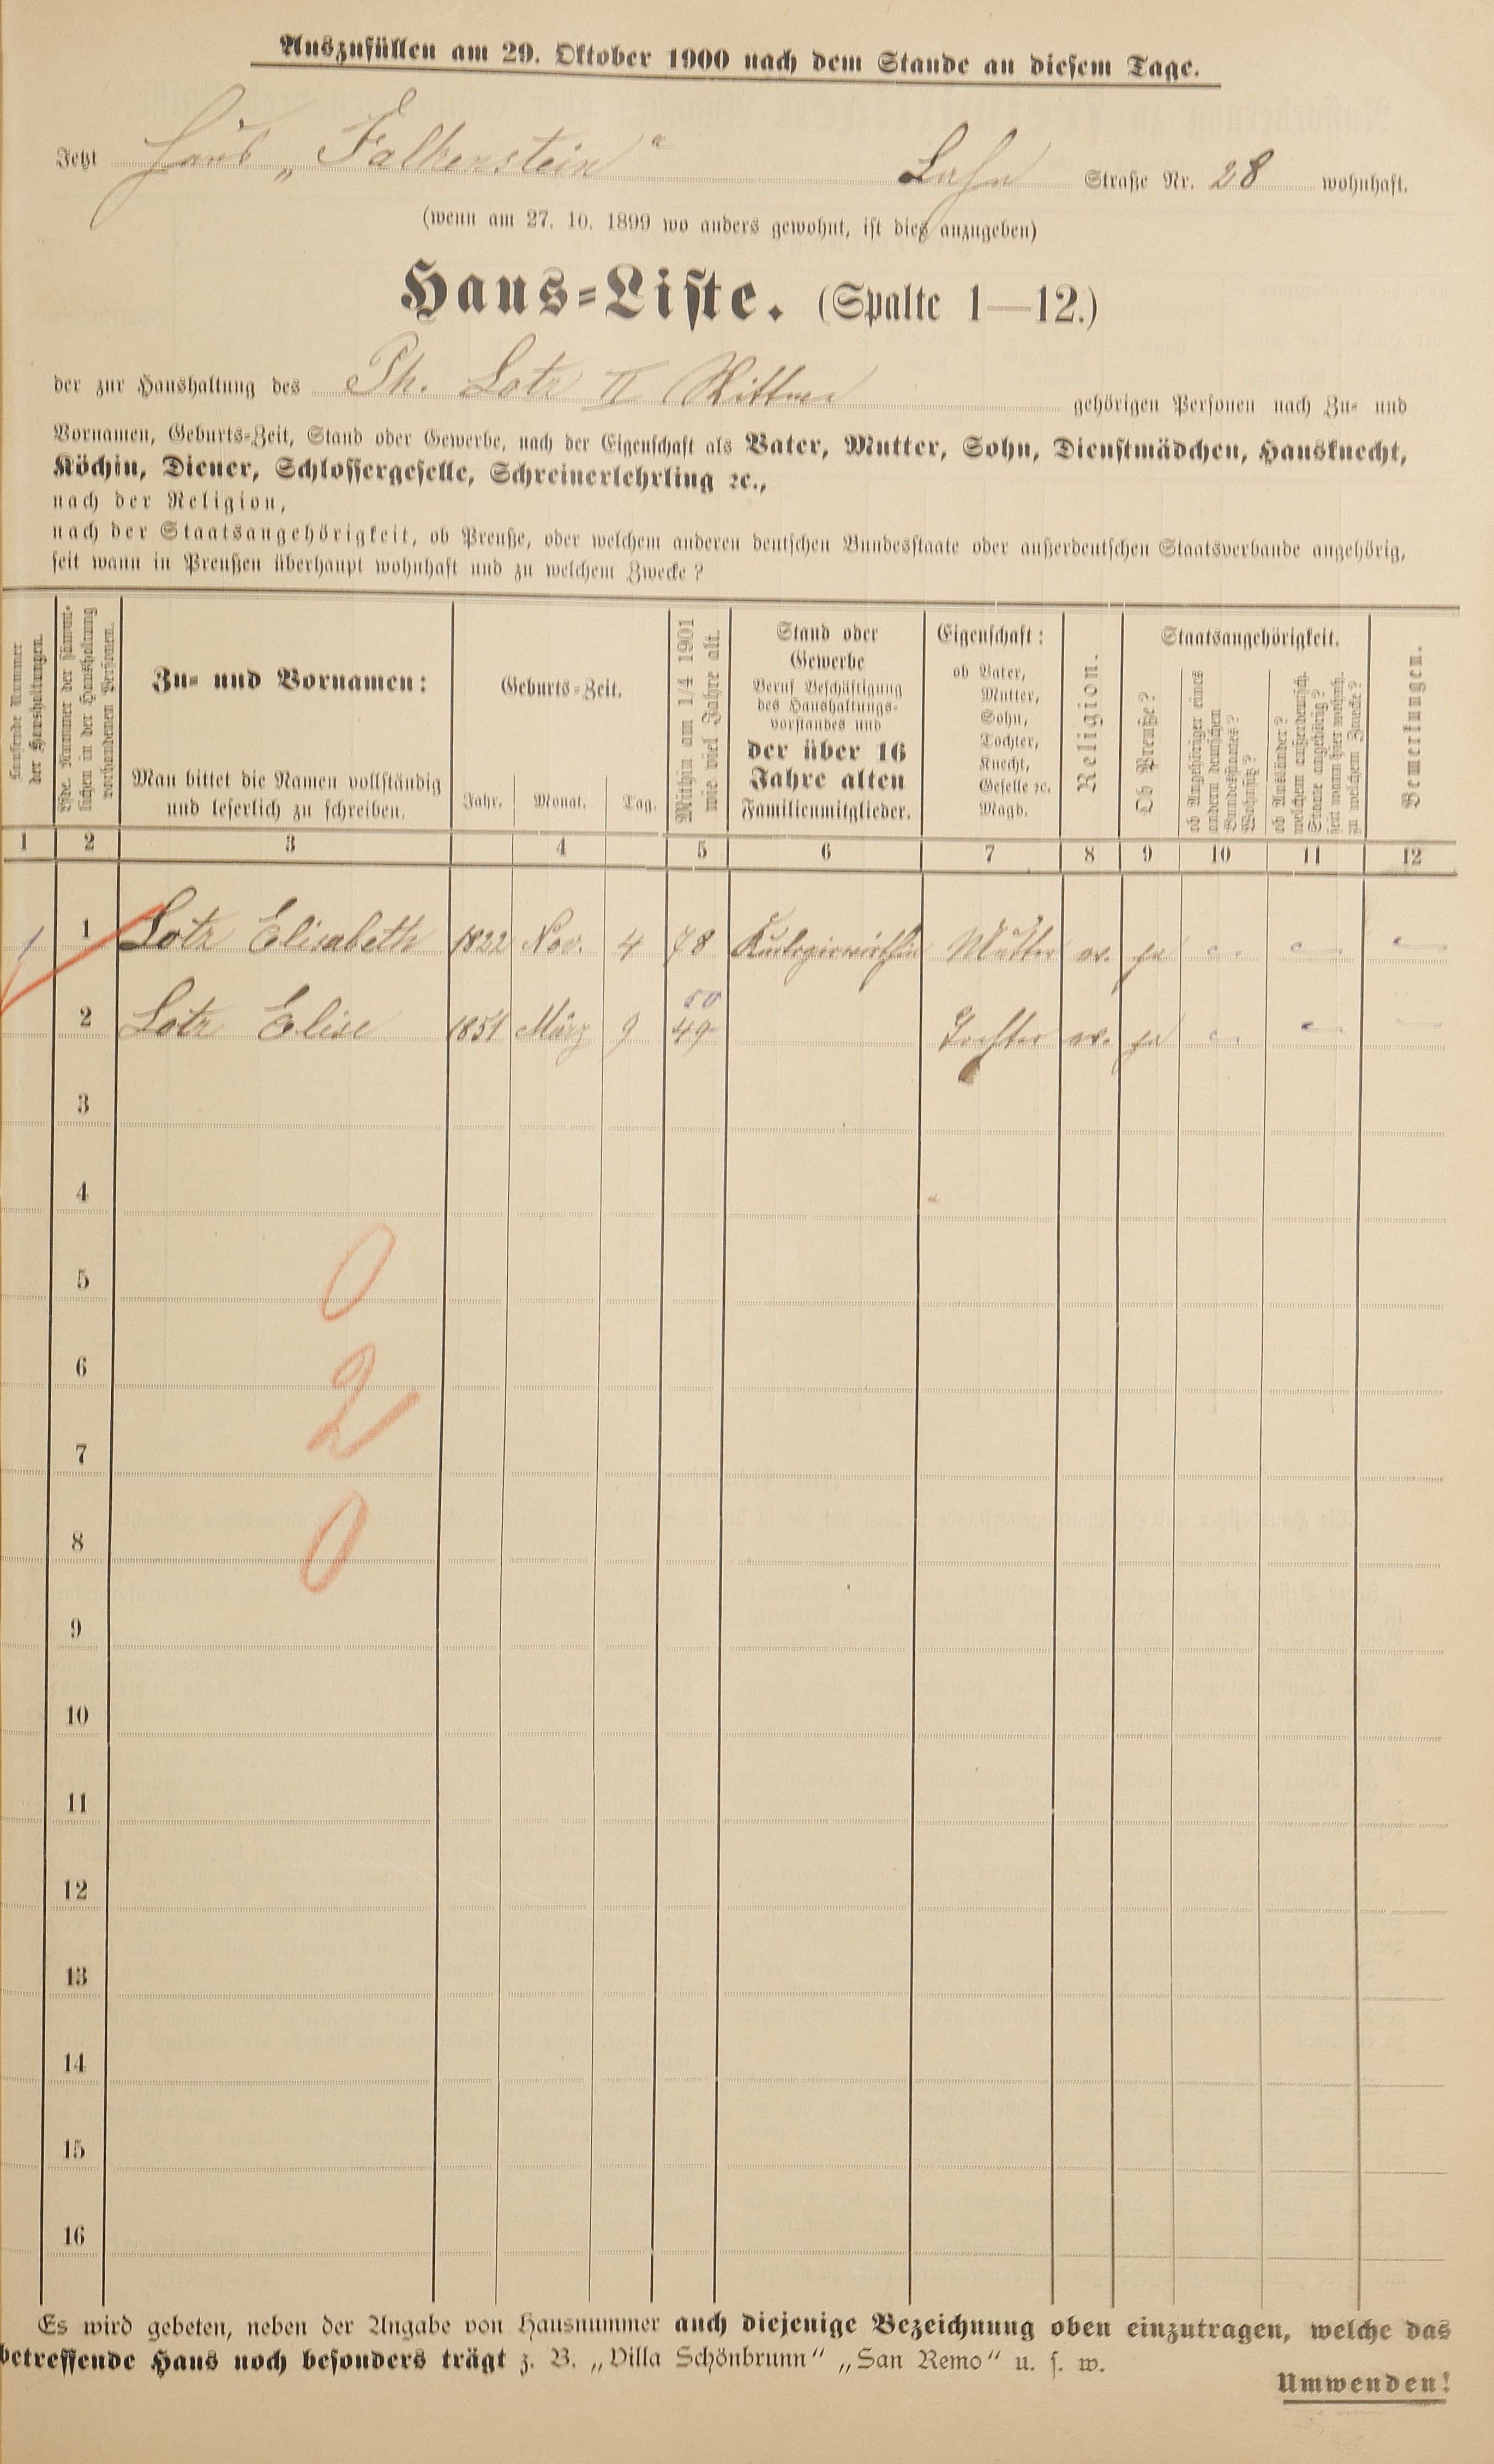 Auszufüllen am 29. Oktober 1900 nach dem Stande an diesem Tage.
Jetzt Haus „Falkenstein“ Lahn Straße Nr. 28 wohnhaft.
(wenn am 27. 10. 1899 wo anders gewohnt, ist dies anzugeben)
Haus-Liste. (Spalte 1—12.)
der zur Haushaltung des Ph. Lotz II Wittwe gehörigen Personen nach Zu- und
Vornamen, Geburts-Zeit, Stand oder Gewerbe, nach der Eigenschaft als Vater, Mutter, Sohn, Dienstmädchen, Hausknecht,
Köchin, Diener, Schlossergeselle, Schreinerlehrling ꝛc.,
nach der Religion,
nach der Staatsangehörigkeit, ob Preuße, oder welchem anderen deutschen Bundesstaate oder außerdeutschen Staatsverbande angehörig,
seit wann in Preußen überhaupt wohnhaft und zu welchem Zwecke?
Laufende Nummer
der Haushaltungen.
Lfde. Nummer der sämmt-
lichen in der Haushaltung
vorhandenen Personen.
Zu- und Vornamen:
Man bittet die Namen vollständig
und leserlich zu schreiben.
Geburts-Zeit.
Jahr. Monat. Tag.
Mithin am 1/4 1901
wie viel Jahre alt.
Stand oder
Gewerbe
Beruf Beschäftigung
des Haushaltungs-
vorstandes und
der über 16
Jahre alten
Familienmitglieder.
Eigenschaft:
ob Vater,
Mutter,
Sohn,
Tochter,
Knecht,
Geselle ꝛc.
Magd.
Religion.
Staatsangehörigkeit.
Ob Preuße?
ob Angehöriger eines
andern deutschen
Bundesstaates?
Wohnsitz?
ob Ausländer?
welchem außerdeutsch.
Staate angehörig?
seit wann hier wohnh.
zu welchem Zwecke?
Bemerkungen.
1 2 3 4 5 6 7 8 9 10 11 12
1 1 Lotz Elisabeth 1822 Nov. 4 78 Kurlogirwirthin Mutter ev. ja
50
2 Lotz Elise 1851 März 9 49 Tochter ev. ja
3
4
0
5
6
2
7
8
0
9
10
11
12
13
14
15
16
Es wird gebeten, neben der Angabe von Hausnummer auch diejenige Bezeichnung oben einzutragen, welche das
betreffende Haus noch besonders trägt z. B. „Villa Schönbrunn“ „San Remo“ u. s. w.
Umwenden!